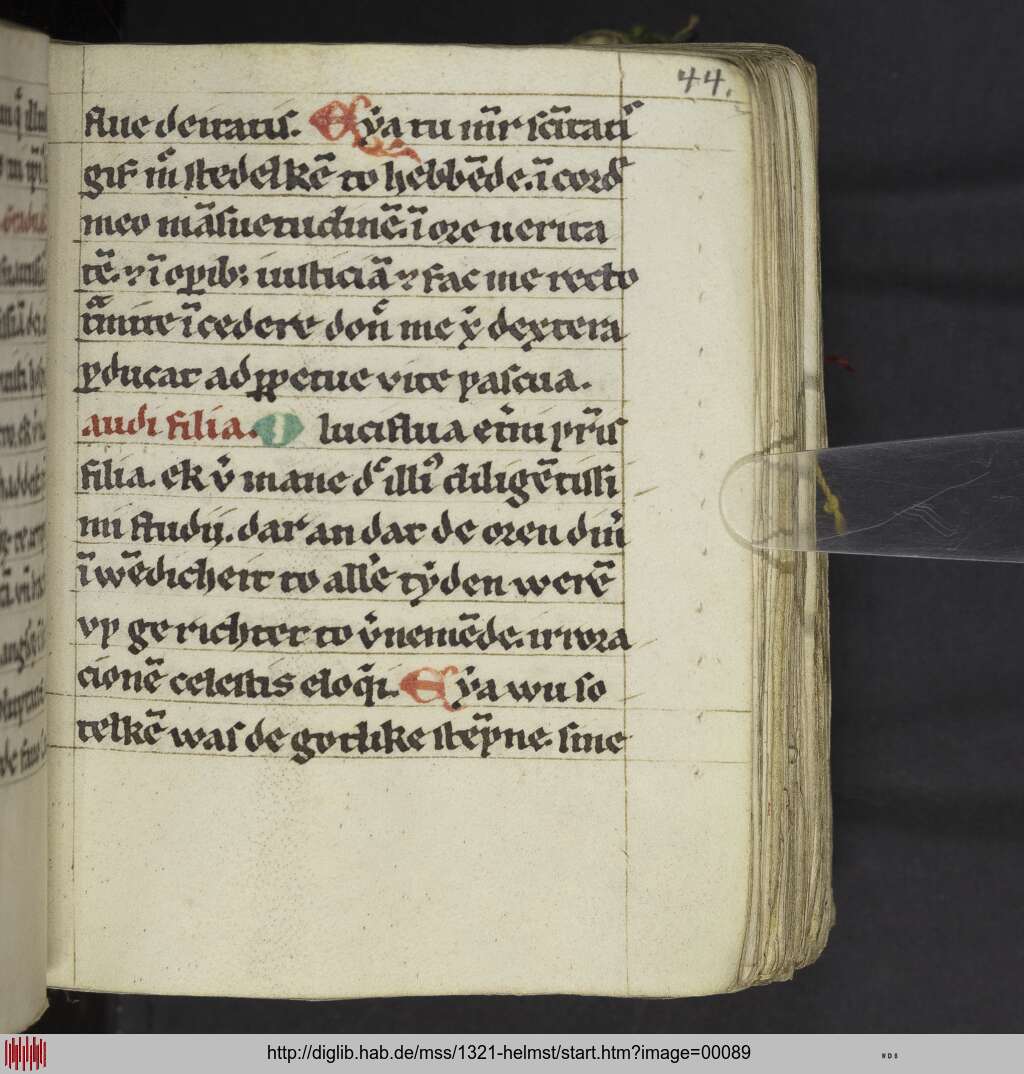 44.
flue deitatis. Eẏa tu mr̄ scītatis
gif mi stedelkē to hebbēde. ī cord
meo māsuetudinē. ī ore uerita
tē. ⁊ ī opib; iusticiā ⁊ fac me recto
tmite īcedere don me ẏ dextera
ꝓducat ad ꝑpetue vite pascua.
audi filia. O luciflua et̓ni pr̄is
filia. ek v̓ mane d illi diligētissi
mi studij. dat an dat de oren din̄
īwēdicheit to alle tẏden werē
vp gerichtet to v̓nemēde. irrora
cionē celestis eloq̄i. Eẏa wu so
telkē was de gotlike stēpne. sine
http://diglib.hab.de/mss/1321-helmst/start.htm?image=00089